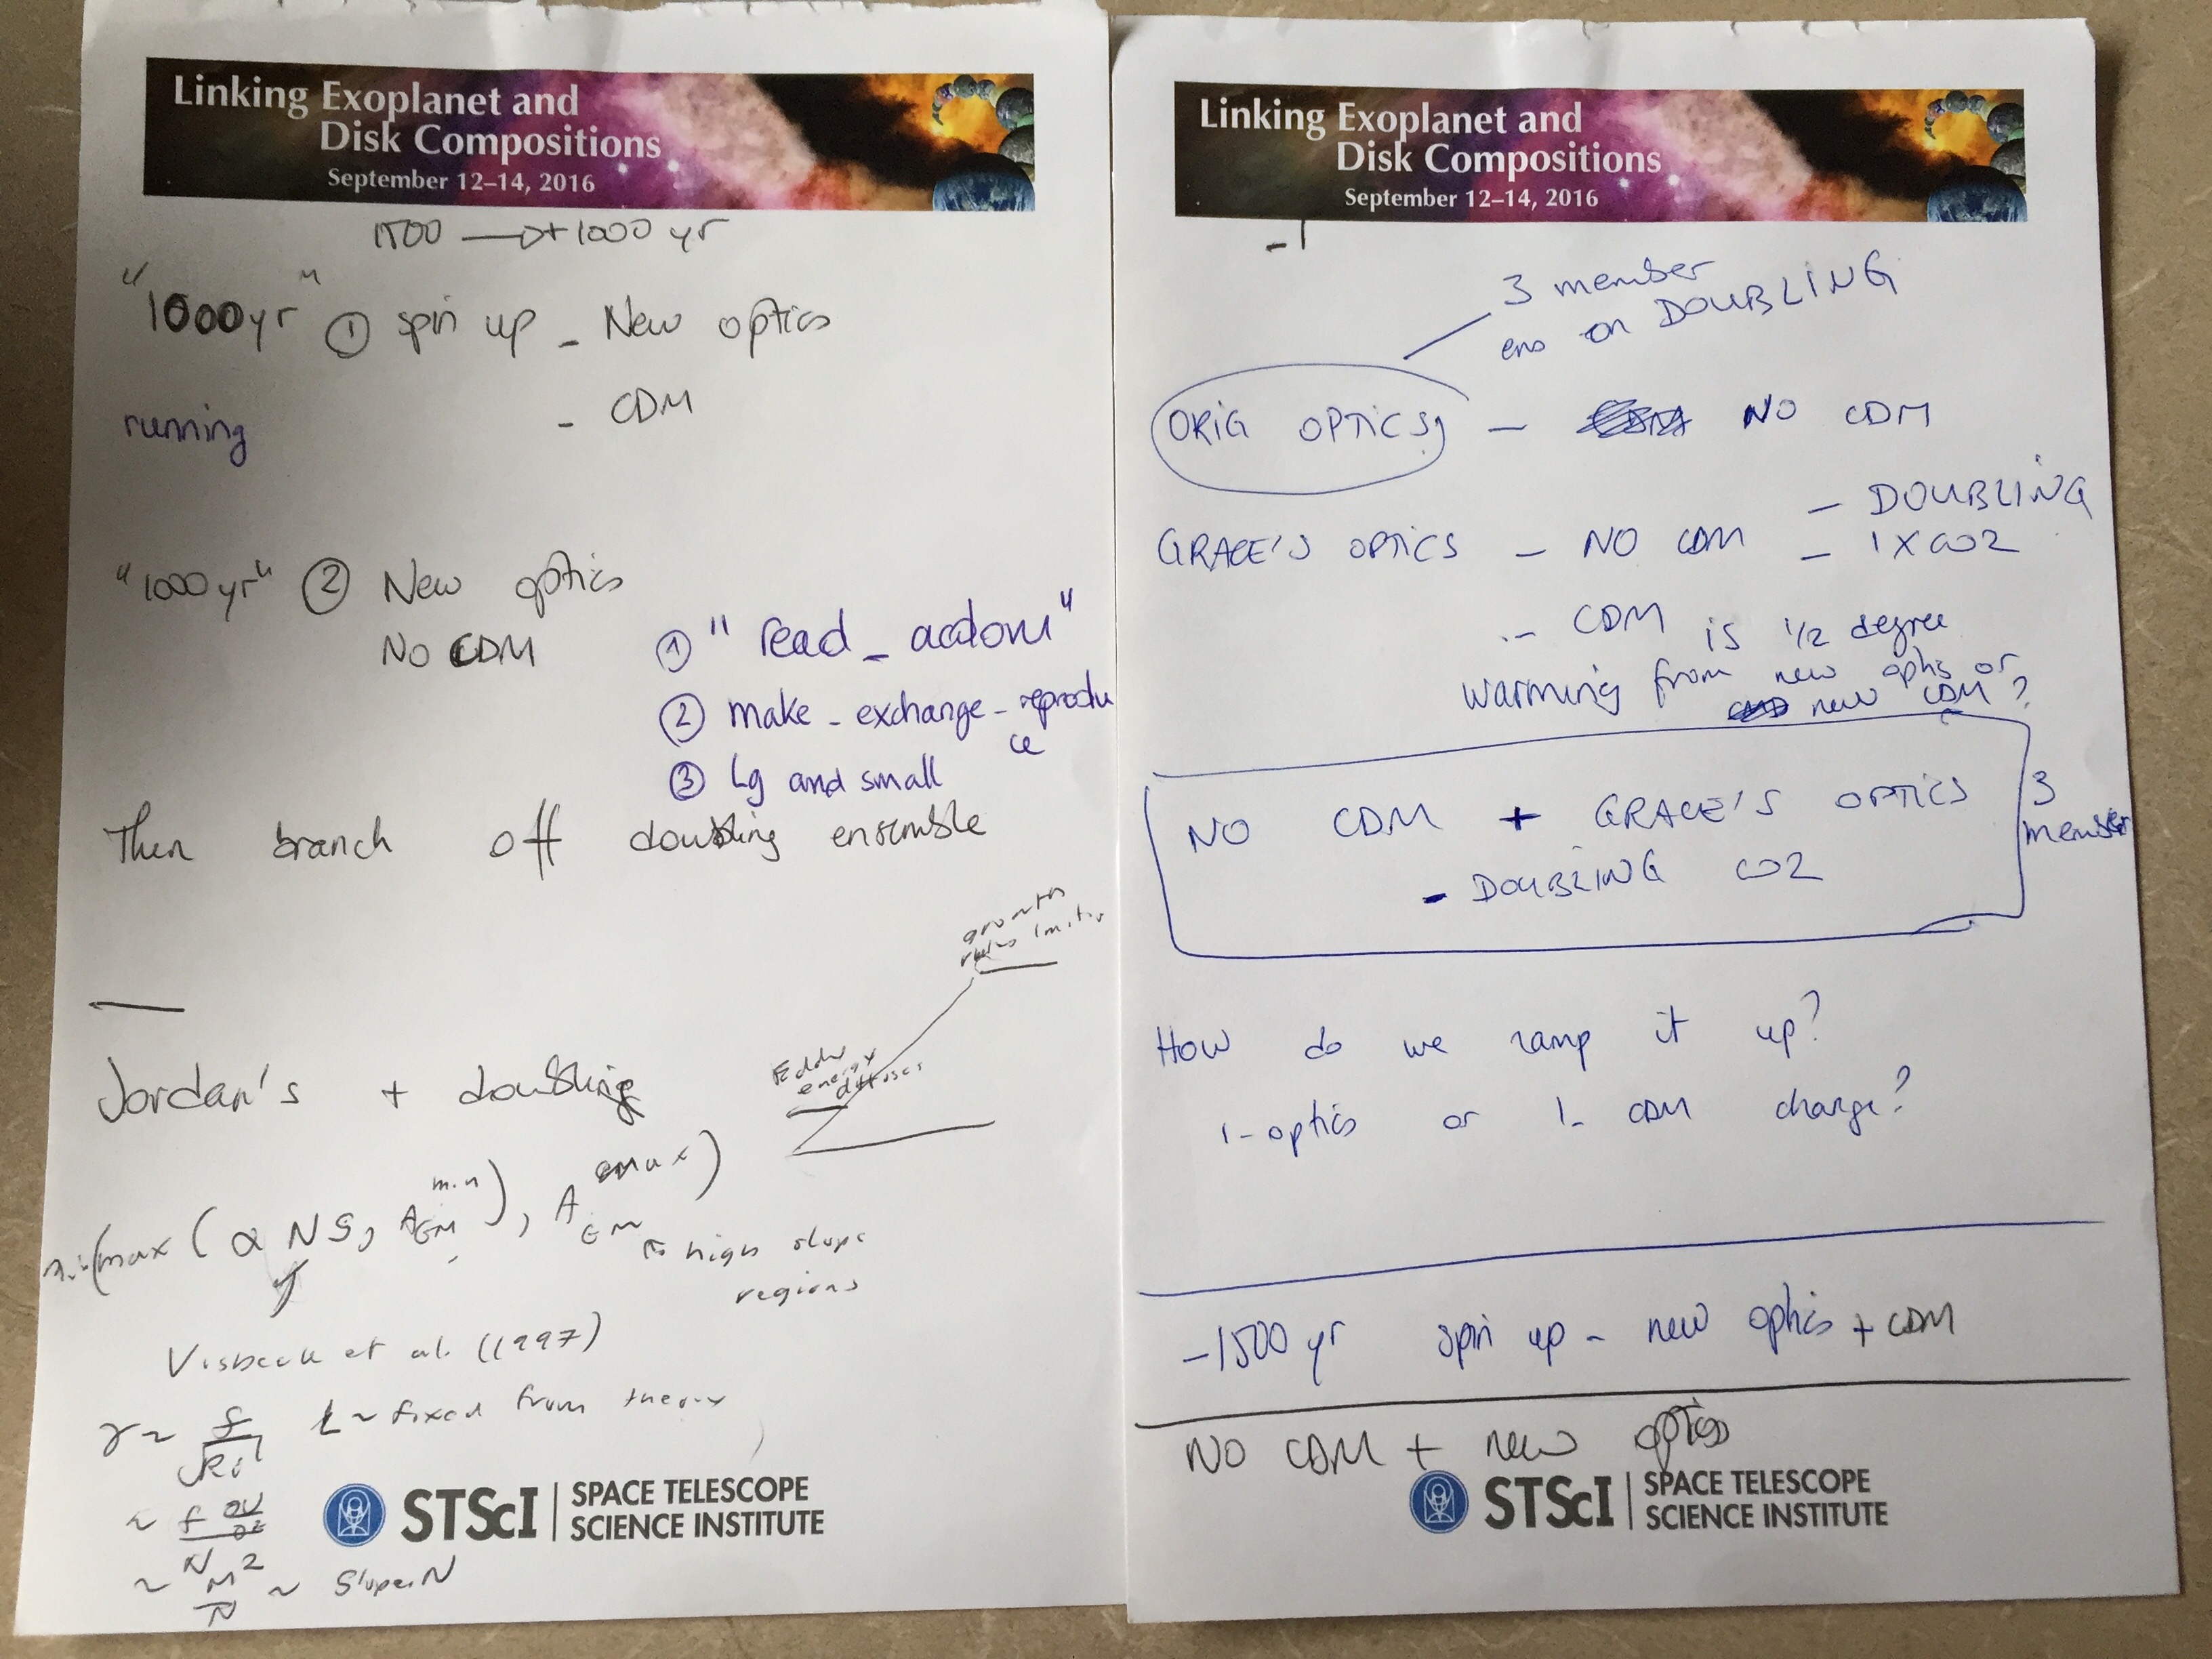 Linking Exoplanet and
Disk Compositions
September 12–14, 2016
1500 → + 1000 yr
"1000yr" ① spin up - New optics
- CDM
running
"1000yr" ② New optics
No CDM
① "read_
② make_exchange_reprodu
ce
③ Lg and small
Then branch off doubling ensemble
growth
Eddy
energy
Jordan's + doubling
max (α N S, A_GM^min), A_GM^max)
high slope
regions
Visbeck et al. (1997)
γ ~ f/√Ri L ~ fixed from theory
~ f ∂U/∂z / N
~ M²/N ~ Slope.N
STScI | SPACE TELESCOPE
SCIENCE INSTITUTE
Linking Exoplanet and
Disk Compositions
September 12–14, 2016
3 member
ens on DOUBLING
ORIG OPTICS - NO CDM
- DOUBLING
GRACE'S OPTICS - NO CDM - 1XCO2
- CDM is 1/2 degree
warming from new optics or
new CDM?
NO CDM + GRACE'S OPTICS
- DOUBLING CO2
3
member
How do we ramp it up?
1- optics or 1- CDM change?
-1500 yr spin up - new optics + CDM
NO CDM + new optics
STScI | SPACE TELESCOPE
SCIENCE INSTITUTE